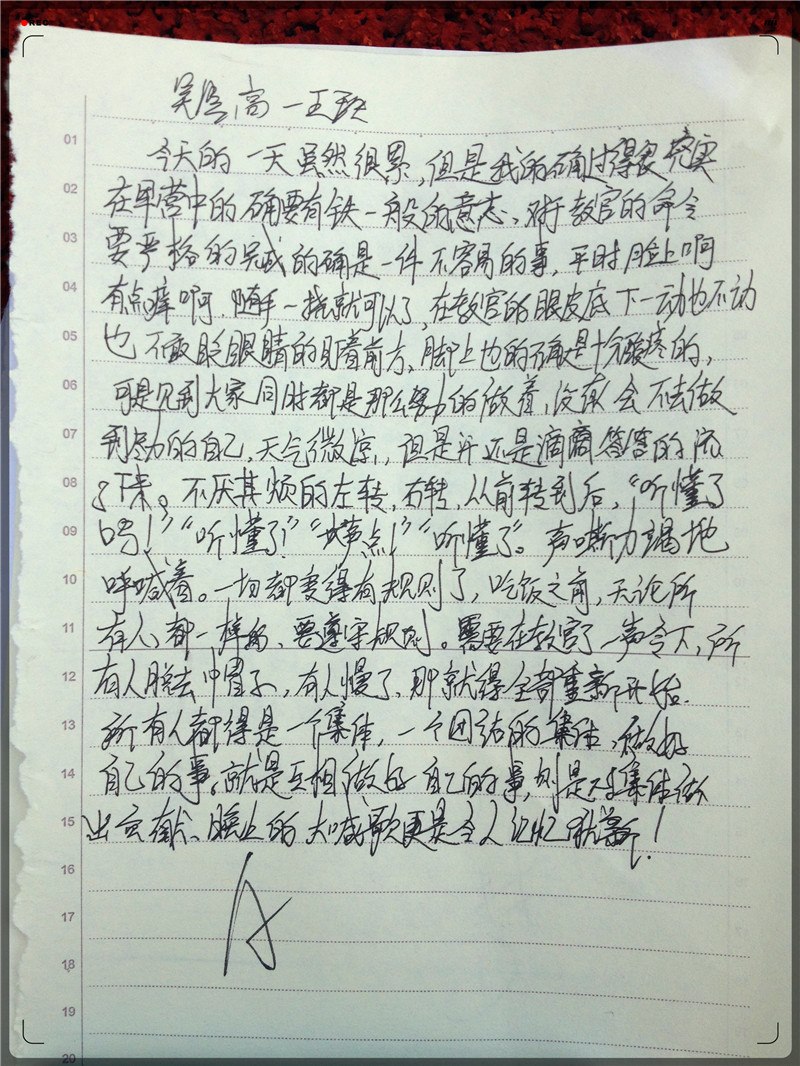 REC
高一王
01 今天的一天虽然很累,但是我的确过得很充实
02 在军营中的确要有铁一般的意志、对于教官的命令
03 要严格的完成的确是一件不容易的事,平时脸上啊
04 有点痒啊,随手一挠就可以了,在教官的眼皮底下一动也不动
05 也不敢眨眼睛的盯着前方,脚上也的确是十分酸疼的,
06 可是见到大家同时都是那么努力的做着,没有会不去做
07 到努力的自己,天气微凉,但是汗还是滴滴答答的流
08 了下来。不厌其烦的左转,右转,从前转到后,“听懂了
09 吗!”“听懂了!”“大声点!”“听懂了”。声嘶力竭地
10 呼喊着。一切都变得有规则了,吃饭之前,无论所
11 有人都一样的,要遵守规则。需要在教官了一声令下,所
12 有人脱去帽子,有人慢了,那就得全部重新开始.
13 所有人都得是一个集体,一个团结的集体,做好
14 自己的事。就是互相做好自己的事,则是为集体做
15 出贡献、晚上的大喊歌更是令人记忆犹新!
16
A
17
18
19
20